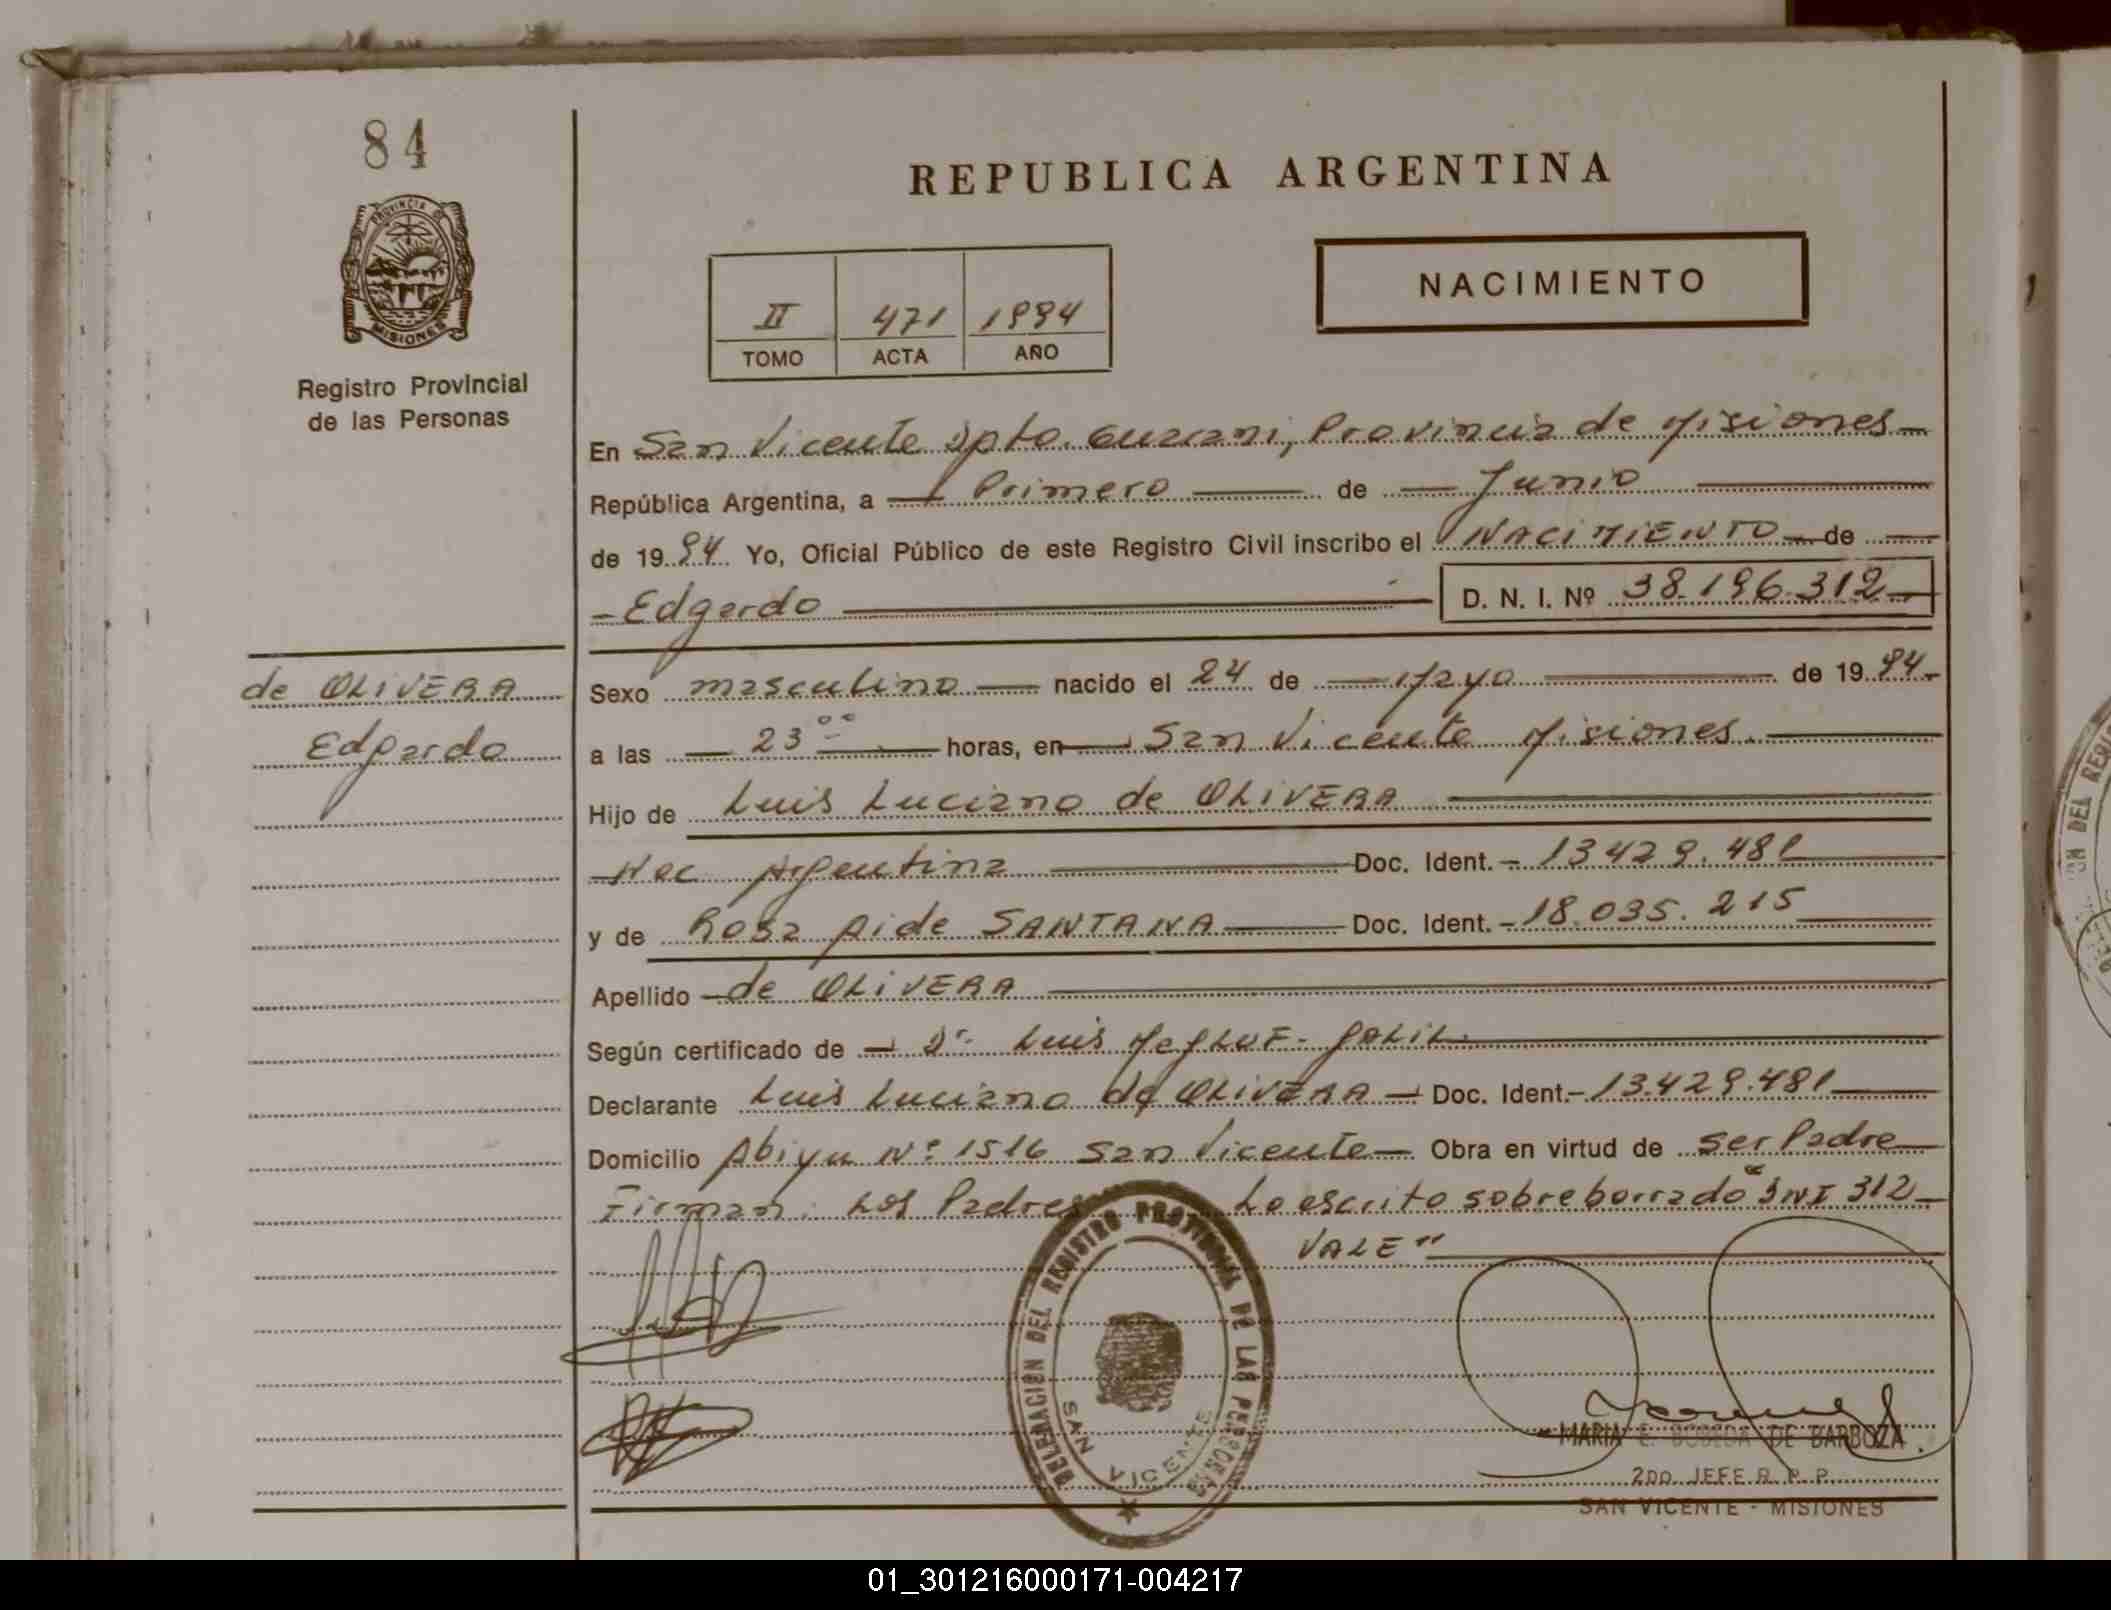 84
PROVINCIA DE
MISIONES
Registro Provincial
de las Personas
REPUBLICA ARGENTINA
II 471 1994
TOMO ACTA AÑO
NACIMIENTO
En San Vicente Dpto. Guarani, Provincia de Misiones
República Argentina, a Primero de Junio
de 1994 Yo, Oficial Público de este Registro Civil inscribo el NACIMIENTO de
Edgardo D. N. I. Nº 38.196.312
de OLIVERA
Edgardo
Sexo masculino nacido el 24 de Mayo de 1994
a las 23 ºº horas, en San Vicente Misiones.
Hijo de Luis Luciano de OLIVERA
Nac Argentina Doc. Ident. 13429.481
y de Rosa Aide SANTANA Doc. Ident. 18.035.215
Apellido de OLIVERA
Según certificado de Dr. Luis GALIL.
Declarante Luis Luciano de OLIVERA Doc. Ident. 13.429.481
Domicilio Abiyu Nº 1516 San Vicente Obra en virtud de ser Padre
Firman: Los Padres Lo escrito sobreborrado "DNI 312
VALE"
DELEGACION DEL REGISTRO PROVINCIAL DE LAS PERSONAS
SAN VICENTE
MARIA E. DE BARBOZA
2DO JEFE R. P. P.
SAN VICENTE - MISIONES
01_301216000171-004217